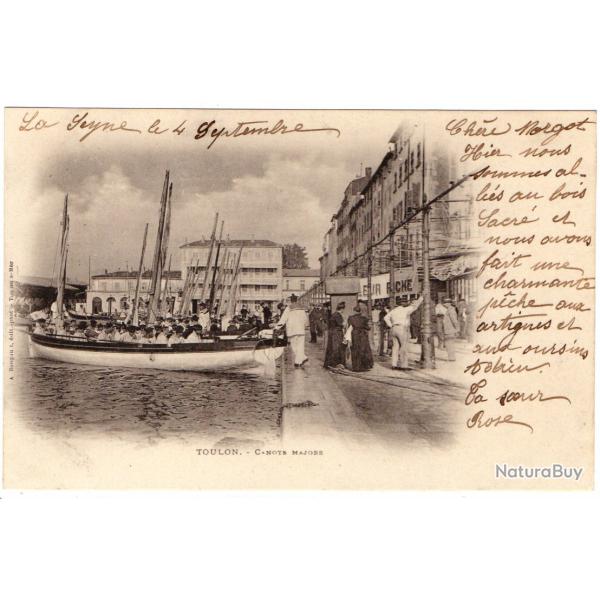 La Seyne le 4 Septembre
Chère Margot
Hier nous
sommes al-
lés au bois
Sacré et
nous avons
fait une
charmante
pêche aux
artignes et
aux oursins
Adieu
Ta sœur
Rose
PUR RICHE
TOULON. - CANOTS MAJORS
NaturaBuy